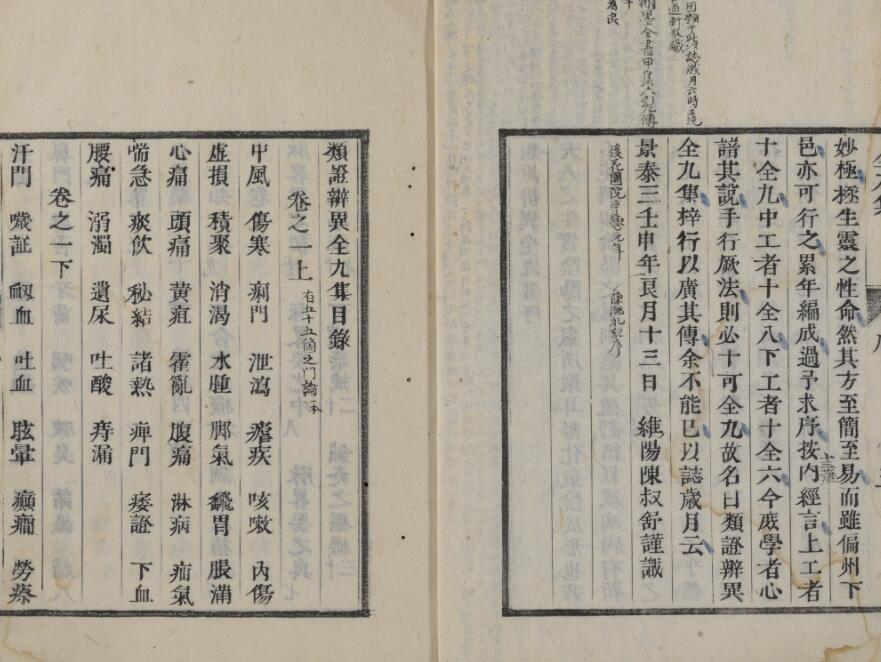 妙極極生靈之性命然其方至簡至易而雖偏州下
邑亦可行之累年編成過予求序按內經言上工者
十全九中工者十全八下工者十全六今庶學者心
諳其說手行厥法則必十可全九故名曰類證辨異
全九集梓行以廣其傳余不能已以誌歲月云
景泰三壬申年良月十三日 維陽陳叔舒謹識
後花園院享德元年
類證辨異全九集目錄
卷之一上 有五十五箇之門論一本
中風 傷寒 痢門 泄瀉 瘧疾 咳嗽 內傷
虛損 積聚 消渴 水腫 脚氣 飜胃 脹滿
心痛 頭痛 黃疸 霍亂 腹痛 淋病 疝氣
喘急 痰飲 秘結 諸熱 痺門 痿證 下血
腰痛 溺濁 遺尿 吐酸 痔漏
卷之一下
汗門 嘰証 衂血 吐血 眩暈 癲癎 勞瘵